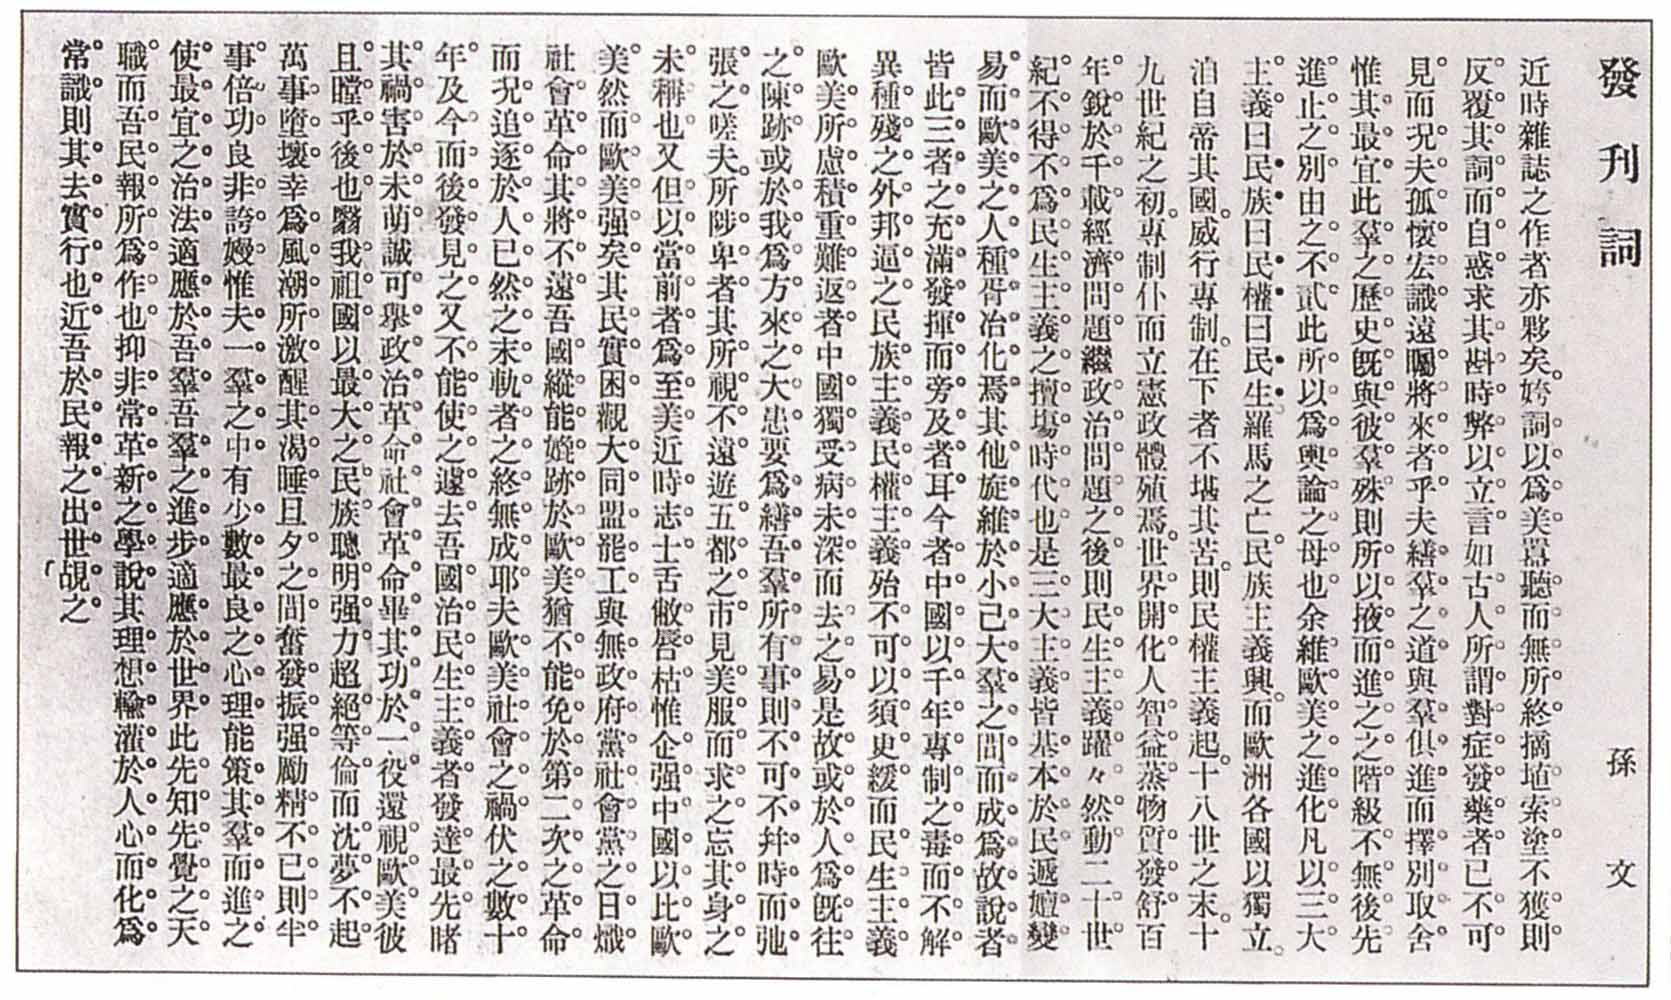 發刊詞
孫文
近時雜誌之作者亦夥矣。姱詞以爲美囂聽而無所終摘埴索塗不獲則
反覆其詞而自惑求其斟時弊以立言如古人所謂對症發藥者已不可
見而況夫孤懷宏識遠矚將來者乎夫繕羣之道與羣俱進而擇別取舍
惟其最宜此羣之歷史既與彼羣殊則所以掖而進之之階級不無後先
進止之別由之不貳此所以爲輿論之母也余維歐美之進化凡以三大
主義曰民族曰民權曰民生羅馬之亡。民族主義興。而歐洲各國以獨立。
洎自帝其國。威行專制。在下者不堪其苦。則民權主義起。十八世之末。十
九世紀之初。專制仆而立憲政體殖焉。世界開化。人智益蒸。物質發舒。百
年銳於千載經濟問題繼政治問題之後則民生主義躍々然動二十世
紀不得不爲民生主義之擅場時代也是三大主義皆基本於民遞嬗變
易而歐美之人種胥冶化焉其他旋維於小己大羣之間而成爲故說者
皆此三者之充滿發揮而旁及者耳今者中國以千年專制之毒而不解
異種殘之外邦逼之民族主義民權主義殆不可以須臾緩而民生主義
歐美所慮積重難返者中國獨受病未深而去之易是故或於人爲既往
之陳跡或於我爲方來之大患要爲繕吾羣所有事則不可不幷時而弛
張之嗟夫所陟卑者其所視不遠遊五都之市見美服而求之忘其身之
未稱也又但以當前者爲至美近時志士舌敝唇枯惟企强中國以比歐
美然而歐美强矣其民實困觀大同盟罷工與無政府黨社會黨之日熾
社會革命其將不遠吾國縱能媲跡於歐美猶不能免於第二次之革命
而況追逐於人已然之末軌者之終無成耶夫歐美社會之禍伏之數十
年及今而後發見之又不能使之遽去吾國治民生主義者發達最先睹
其禍害於未萌誠可舉政治革命社會革命畢其功於一役還視歐美彼
且瞠乎後也翳我祖國以最大之民族聰明强力超絕等倫而沈夢不起
萬事墮壞幸爲風潮所激醒其渴睡旦夕之間奮發振强勵精不已則半
事倍功良非誇嫚惟夫一羣之中有少數最良之心理能策其羣而進之
使最宜之治法適應於吾羣吾羣之進步適應於世界此先知先覺之天
職而吾民報所爲作也抑非常革新之學說其理想輸灌於人心而化爲
常識則其去實行也近吾於民報之出世覘之